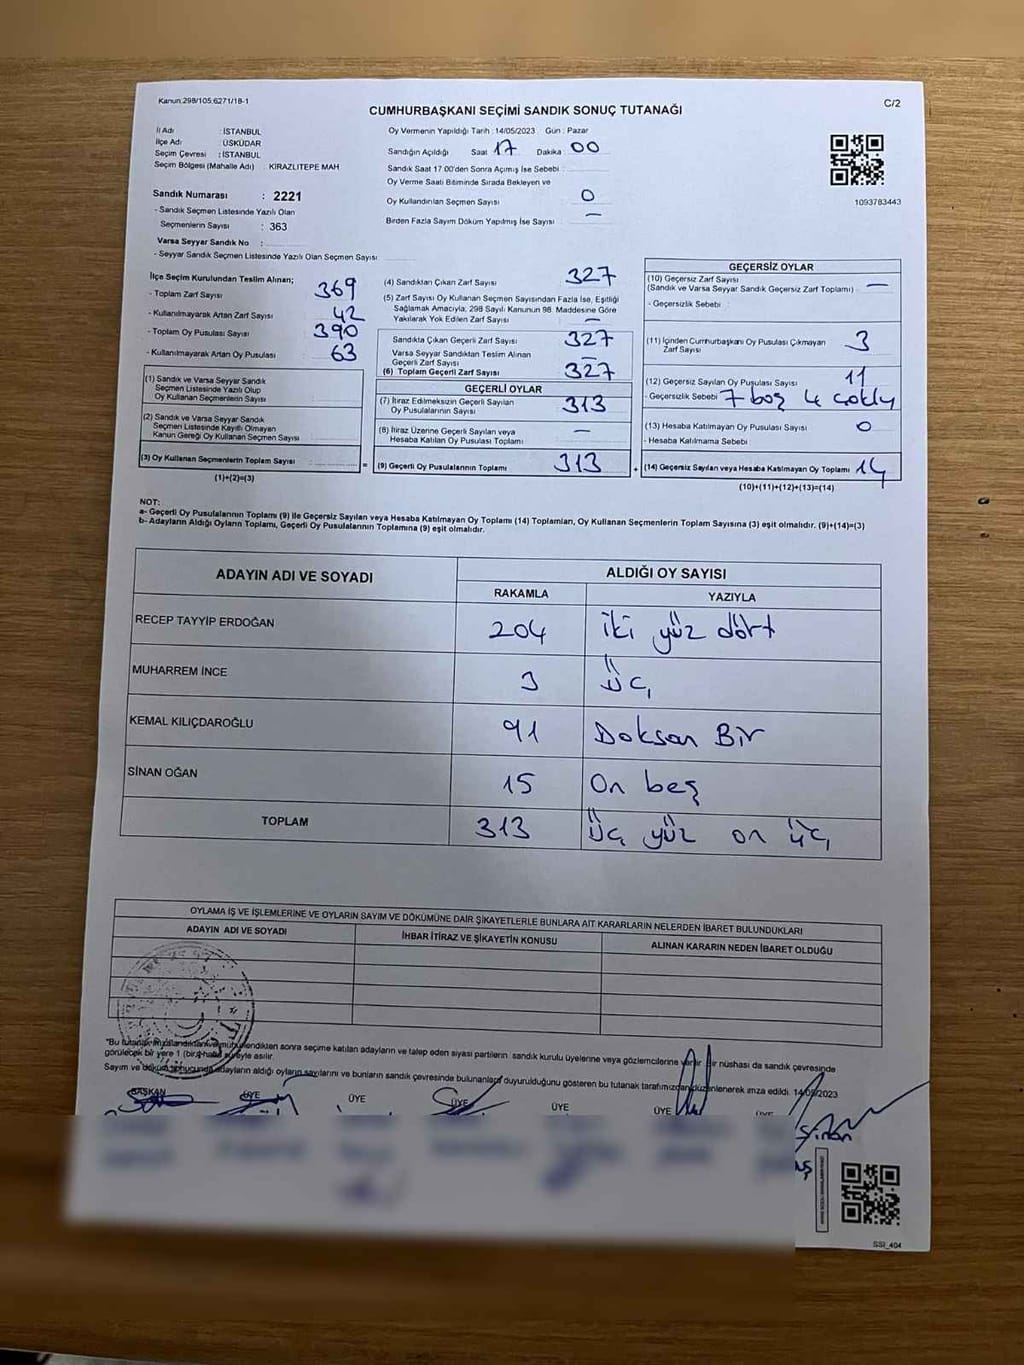 Kanun:298/105;6271/18-1
C/2
CUMHURBAŞKANI SEÇİMİ SANDIK SONUÇ TUTANAĞI
İl Adı : İSTANBUL
İlçe Adı : ÜSKÜDAR
Seçim Çevresi : İSTANBUL
Seçim Bölgesi (Mahalle Adı) : KİRAZLITEPE MAH
Sandık Numarası : 2221
- Sandık Seçmen Listesinde Yazılı Olan
Seçmenlerin Sayısı : 363
Varsa Seyyar Sandık No :
- Seyyar Sandık Seçmen Listesinde Yazılı Olan Seçmen Sayısı :
Oy Vermenin Yapıldığı Tarih :14/05/2023 Gün : Pazar
Sandığın Açıldığı Saat 17 Dakika 00
Sandık Saat 17:00'den Sonra Açılmış İse Sebebi :
Oy Verme Saati Bitiminde Sırada Bekleyen ve
Oy Kullandırılan Seçmen Sayısı 0
Birden Fazla Sayım Döküm Yapılmış İse Sayısı —
1093783443
İlçe Seçim Kurulundan Teslim Alınan;
- Toplam Zarf Sayısı 369
- Kullanılmayarak Artan Zarf Sayısı 42
- Toplam Oy Pusulası Sayısı 390
- Kullanılmayarak Artan Oy Pusulası 63
(1) Sandık ve Varsa Seyyar Sandık
Seçmen Listesinde Yazılı Olup
Oy Kullanan Seçmenlerin Sayısı
(2) Sandık ve Varsa Seyyar Sandık
Seçmen Listesinde Kayıtlı Olmayan
Kanun Gereği Oy Kullanan Seçmen Sayısı
(3) Oy Kullanan Seçmenlerin Toplam Sayısı
(1)+(2)=(3)
(4) Sandıktan Çıkan Zarf Sayısı 327
(5) Zarf Sayısı Oy Kullanan Seçmen Sayısından Fazla İse, Eşitliği
Sağlamak Amacıyla; 298 Sayılı Kanunun 98. Maddesine Göre
Yakılarak Yok Edilen Zarf Sayısı —
Sandıkta Çıkan Geçerli Zarf Sayısı 327
Varsa Seyyar Sandıktan Teslim Alınan
Geçerli Zarf Sayısı —
(6) Toplam Geçerli Zarf Sayısı 327
GEÇERLİ OYLAR
(7) İtiraz Edilmeksizin Geçerli Sayılan
Oy Pusulalarının Sayısı 313
(8) İtiraz Üzerine Geçerli Sayılan veya
Hesaba Katılan Oy Pusulası Toplamı —
= (9) Geçerli Oy Pusulalarının Toplamı 313
GEÇERSİZ OYLAR
(10) Geçersiz Zarf Sayısı
(Sandık ve Varsa Seyyar Sandık Geçersiz Zarf Toplamı) —
- Geçersizlik Sebebi :
(11) İçinden Cumhurbaşkanı Oy Pusulası Çıkmayan
Zarf Sayısı 3
(12) Geçersiz Sayılan Oy Pusulası Sayısı 11
- Geçersizlik Sebebi : 7 boş 4 çoklu
(13) Hesaba Katılmayan Oy Pusulası Sayısı 0
- Hesaba Katılmama Sebebi
+ (14) Geçersiz Sayılan veya Hesaba Katılmayan Oy Toplamı 14
(10)+(11)+(12)+(13)=(14)
NOT:
a- Geçerli Oy Pusulalarının Toplamı (9) ile Geçersiz Sayılan veya Hesaba Katılmayan Oy Toplamı (14) Toplamları, Oy Kullanan Seçmenlerin Toplam Sayısına (3) eşit olmalıdır. (9)+(14)=(3)
b- Adayların Aldığı Oyların Toplamı, Geçerli Oy Pusulalarının Toplamına (9) eşit olmalıdır.
ADAYIN ADI VE SOYADI ALDIĞI OY SAYISI
RAKAMLA YAZIYLA
RECEP TAYYİP ERDOĞAN 204 iki yüz dört
MUHARREM İNCE 3 üç
KEMAL KILIÇDAROĞLU 91 Doksan Bir
SİNAN OĞAN 15 On beş
TOPLAM 313 üç yüz on üç
OYLAMA İŞ VE İŞLEMLERİNE VE OYLARIN SAYIM VE DÖKÜMÜNE DAİR ŞİKAYETLERLE BUNLARA AİT KARARLARIN NELERDEN İBARET BULUNDUKLARI
ADAYIN ADI VE SOYADI İHBAR İTİRAZ VE ŞİKAYETİN KONUSU ALINAN KARARIN NEDEN İBARET OLDUĞU
"Bu tutanak sonra seçime katılan adayların ve talep eden siyasi partilerin sandık kurulu üyelerine veya gözlemcilerine verilir. Bir nüshası da sandık çevresinde
görülecek bir yere 1 (bir) hafta süreyle asılır.
Sayım ve döküm sonucunda adayların aldığı oyların sayılarını ve bunların sandık çevresinde bulunanlara duyurulduğunu gösteren bu tutanak tarafımızdan düzenlenerek imza edildi. 14/05/2023
BAŞKAN ÜYE ÜYE ÜYE ÜYE ÜYE ÜYE
Sinan
SSI_404